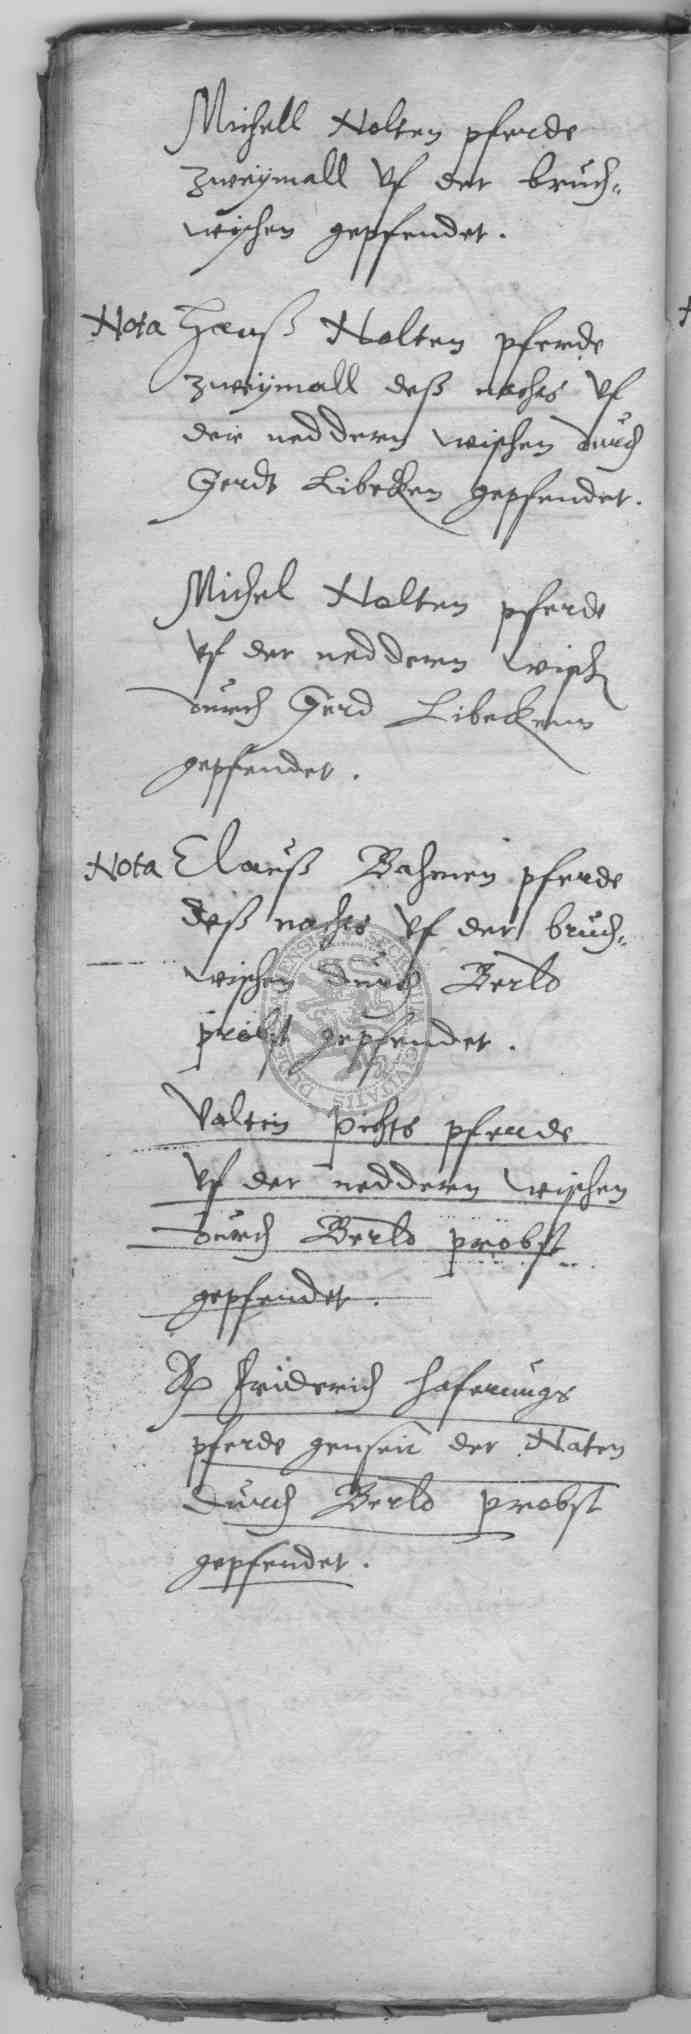 Michell Nolten pferde
zweÿmall vf der bruch-
wischen gepfendet.
Nota Hanß Nolten pferde
zweÿmall deß nachts vf
der neddern wischen durch
Gerdt Libecken gepfendet.
Michel Nolten pferde
vf der nedderen wisch
durch Gerd Libeckenn
gepfendet.
Nota Clauß Bahmen pferde
deß nachts vf der bruch-
wischen durch Berld
probst gepfendet.
Valtin pichts pferde
vf der nedderen wischen
durch Berld probst
gepfendet.
Friderich hafernngs
pferde genseit der Naten
durch Berld probst
gepfendet.